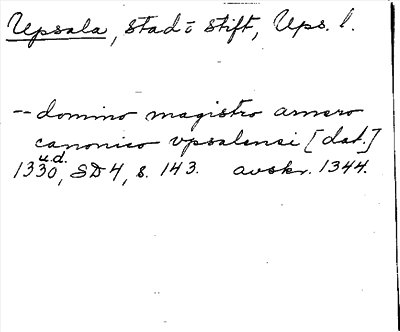 Upsala, stad o stift, Ups. l.
-- domino magistro arnero
canonico vpsalensi [dat.]
u.d.
1330, SD 4, s. 143. avskr. 1344.